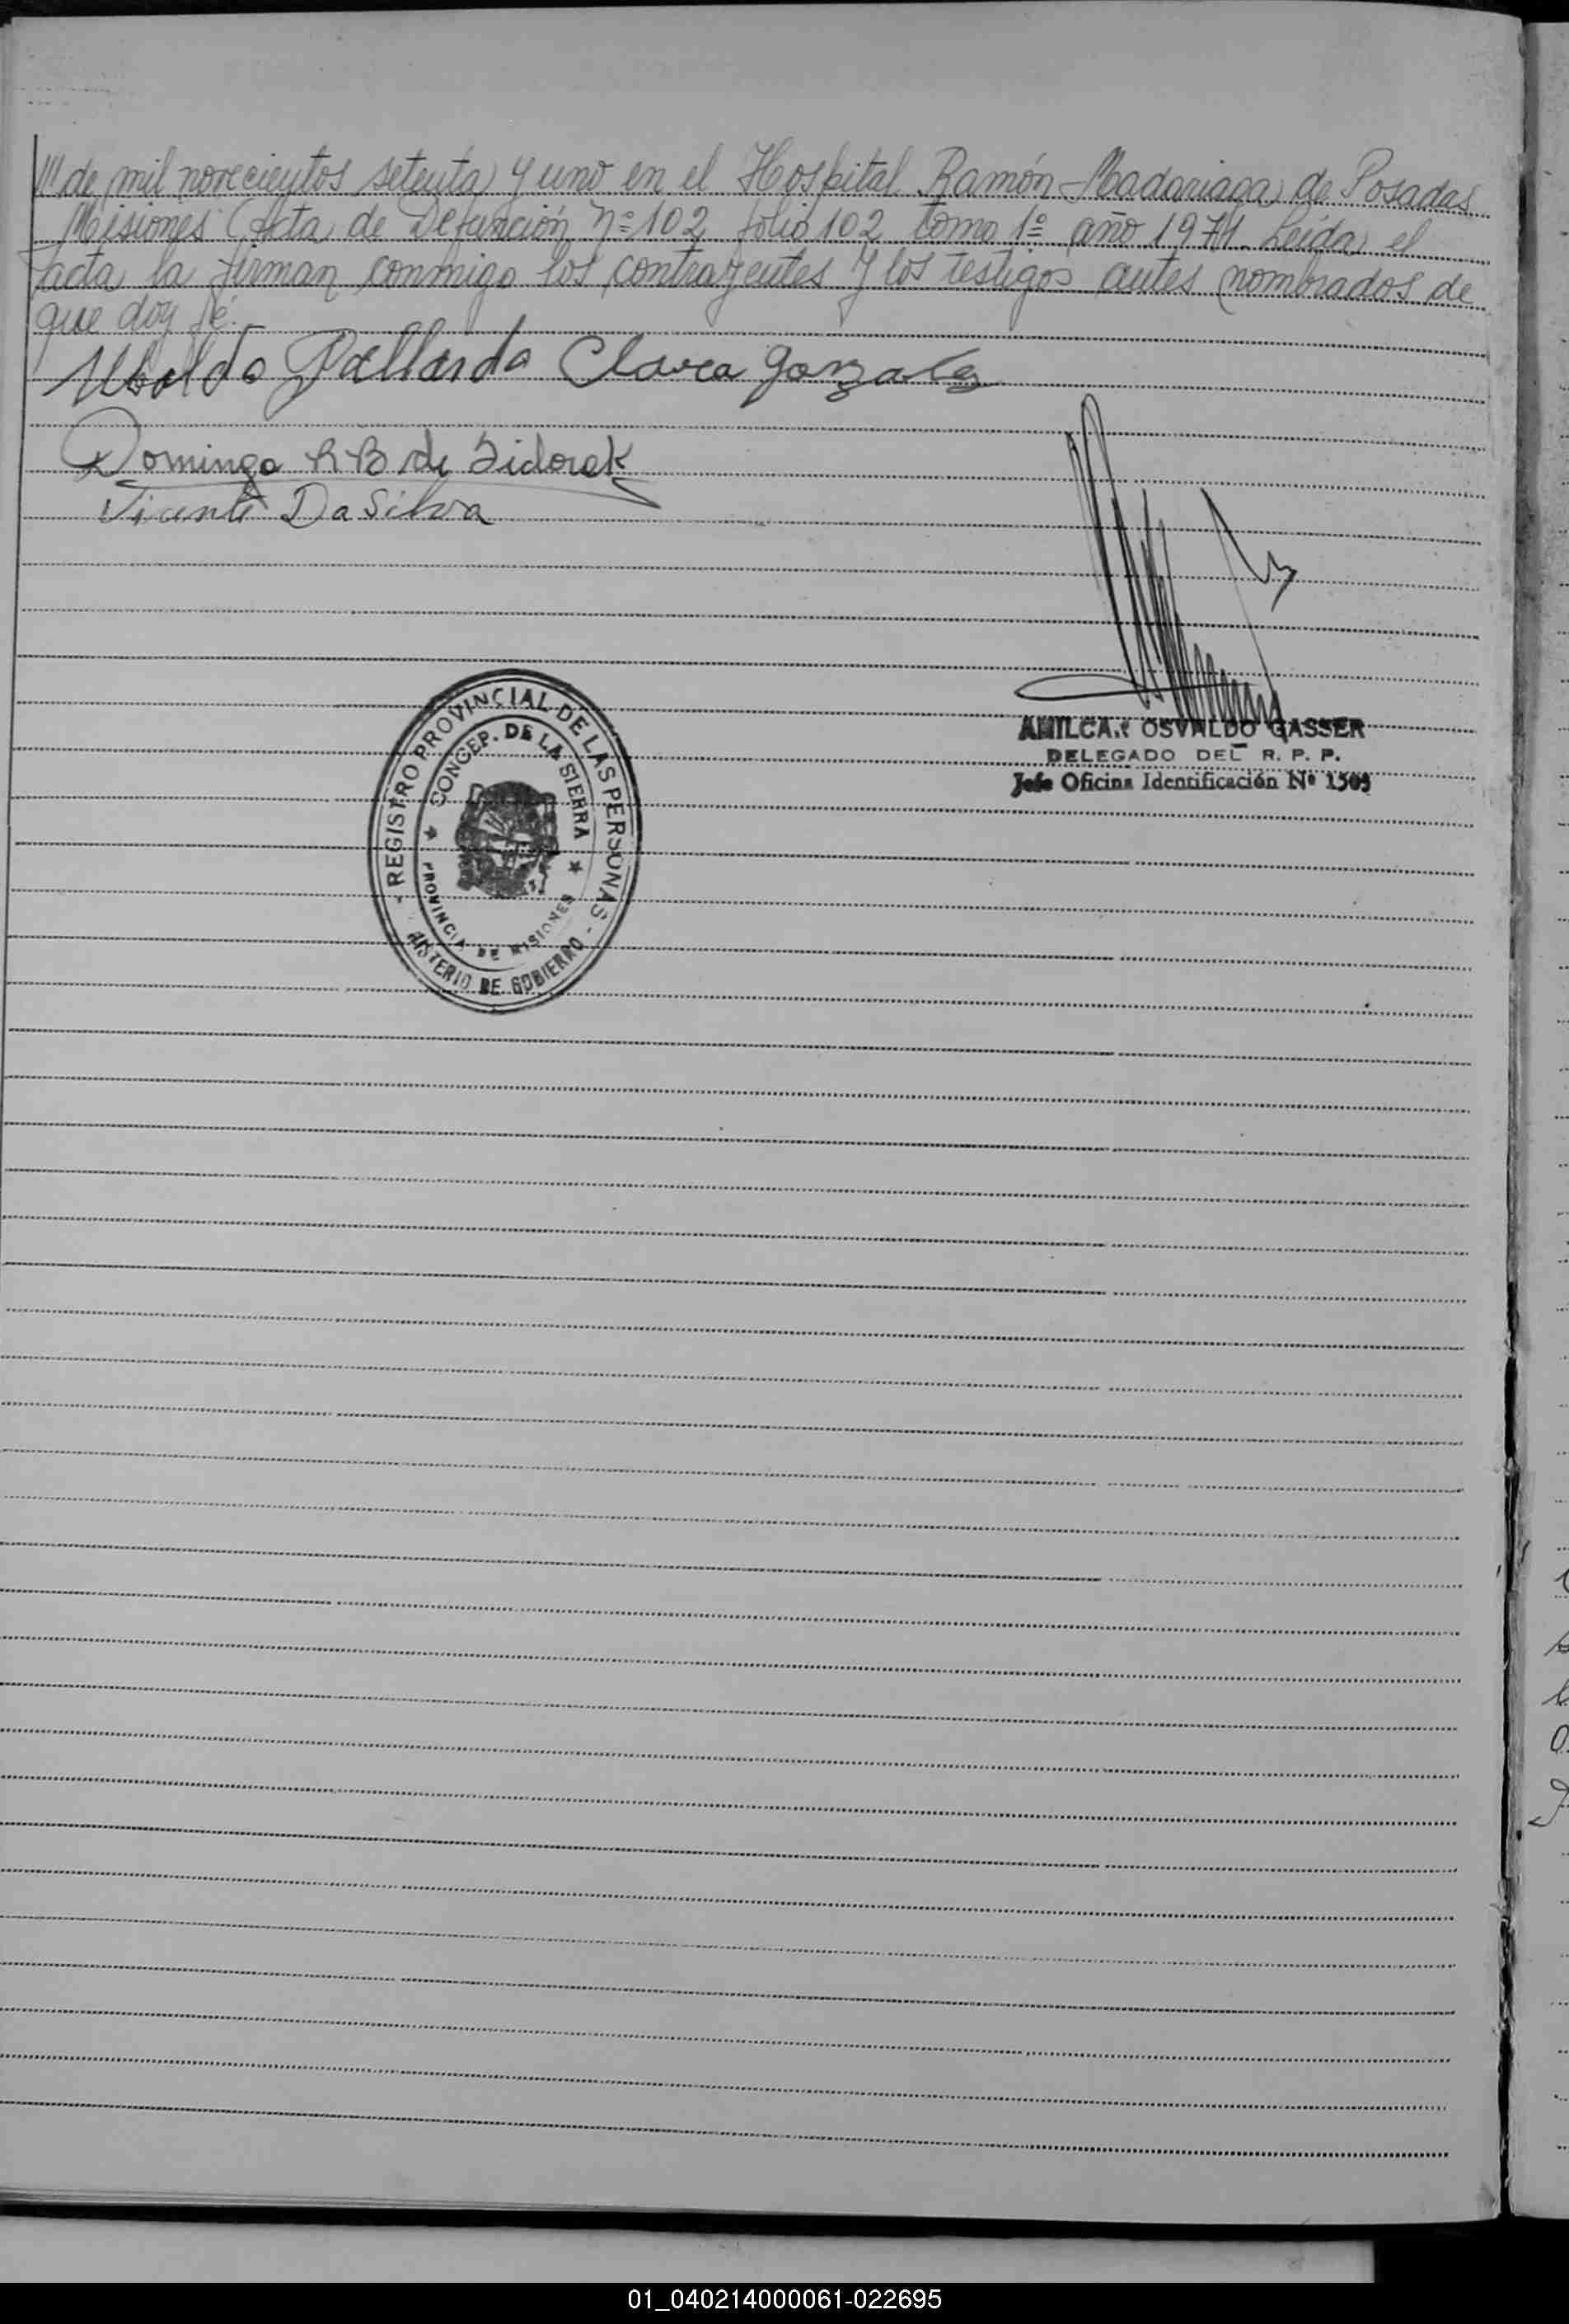 /// de mil novecientos setenta y uno en el Hospital Ramón Madariaga de Posadas
Misiones (Acta de Defunción Nº 102 folio 102 tomo 1º año 1971. Leída el
acta la firman conmigo los contrayentes y los testigos antes nombrados de
que doy fé.
Ubaldo Pallarda Clara Gonzalez
Dominga R B de Sidorak
Vicente Da Silva
AMILCAR OSVALDO GASSER
DELEGADO DEL R. P. P.
Jefe Oficina Identificación Nº 1505
- REGISTRO PROVINCIAL DE LAS PERSONAS -
CONCEP. DE LA SIERRA
PROVINCIA DE MISIONES
NISTERIO DE GOBIERNO
01_040214000061-022695